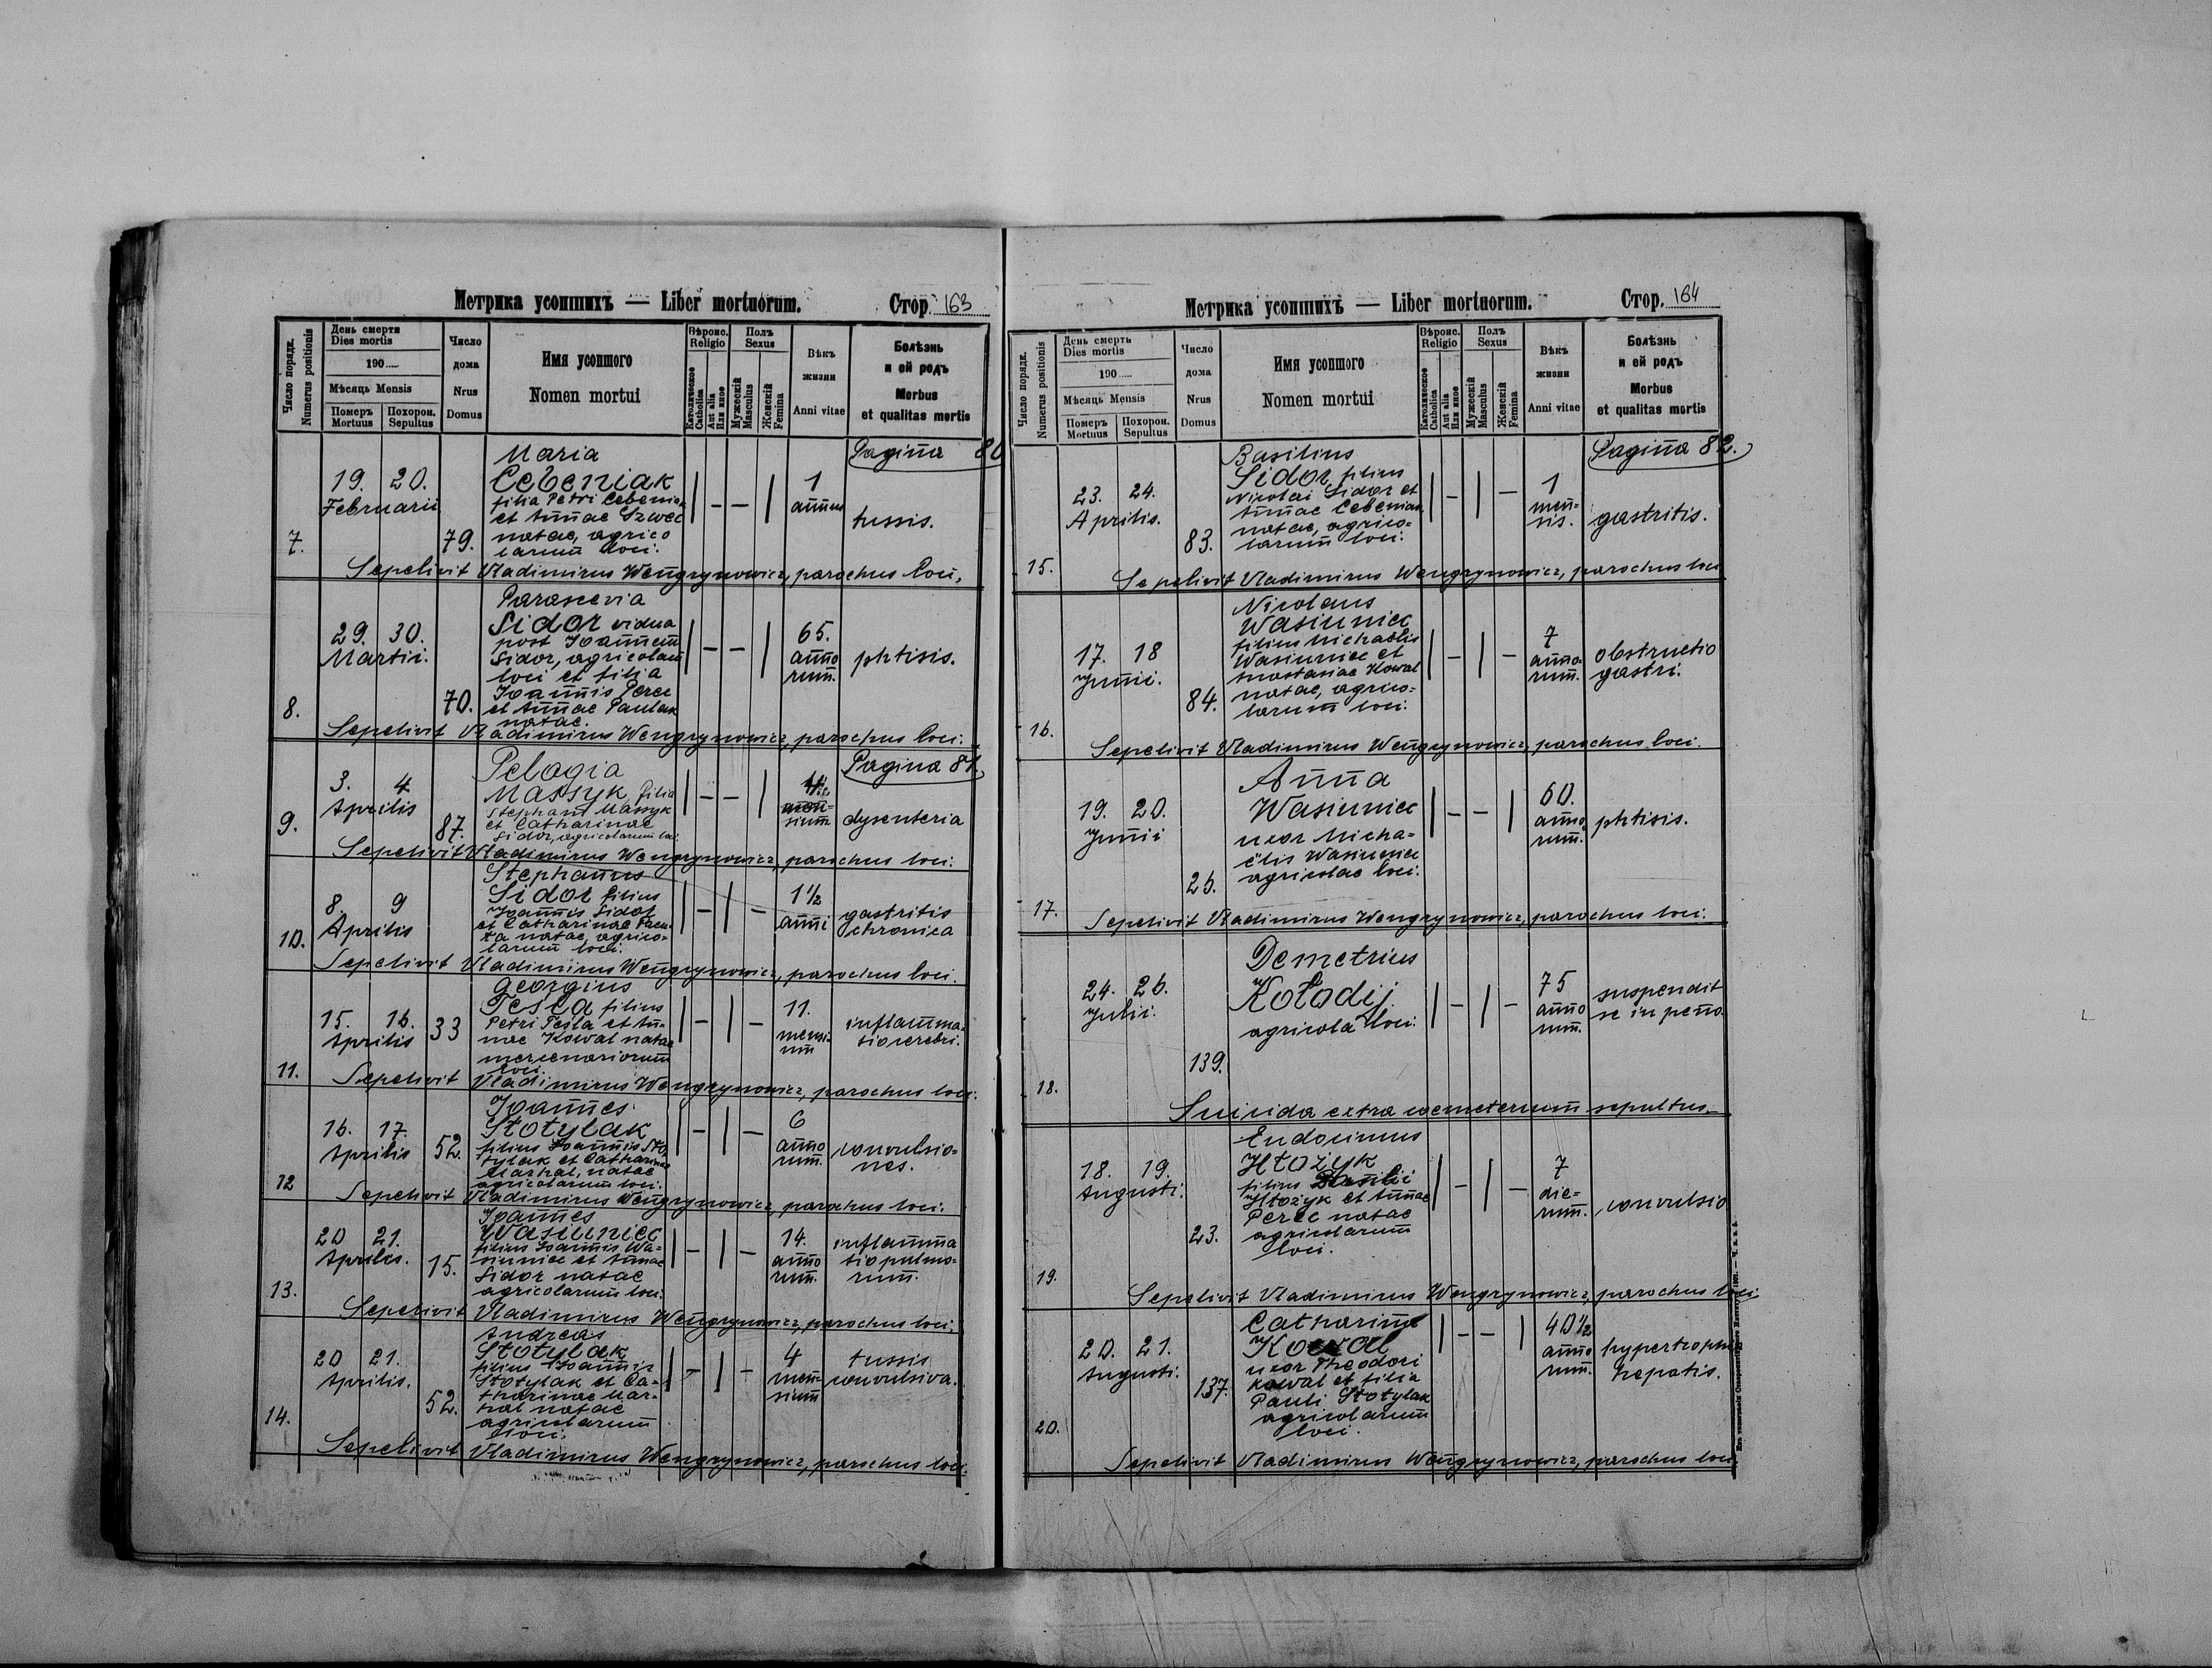 Метрика усопшихъ — Liber mortuorum. Стор. 163
Число порядк.
Numerus positionis
День смерти
Dies mortis
190.....
Мѣсяць Mensis
Померъ
Mortuus
Похорон.
Sepultus
Число
дома
Nrus
Domus
Имя усопшого
Nomen mortui
Вѣроис.
Religio
Католическое
Catholica
Aut alia
Или иное
Полъ
Sexus
Мужескій
Masculus
Женскій
Femina
Вѣкъ
жизни
Anni vitae
Болѣзнь
и ей родъ
Morbus
et qualitas mortis
7.
19. 20.
Februarii
79.
Maria
Cebeniak
filia Petri Cebeniak
et Annae Szwec
natae, agrico
larum loci.
| – – |
1
annus
Pagina 80
tussis.
Sepelivit Vladimirus Wengrynowicz, parochus loci,
8.
29. 30.
Martii.
70.
Parascevia
Sidor vidua
post Joannem
Sidor, agricolam
loci et filia
Joannis Perec
et Annae Pawlak
natae.
| – – |
65.
anno
rum.
phtisis.
Sepelivit Vladimirus Wengrynowicz, parochus loci.
9.
3. 4.
Aprilis
87.
Pelagia
Massyk filia
Stephani Massyk
et Catharinae
Sidor, agricolarum loci
| – – |
men=
sium
Pagina 81.
dysenteria
Sepelivit Vladimirus Wengrynowicz, parochus loci.
10.
8 9
Aprilis
Stephanus
Sidor filius
Joannis Sidor
et Catharinae
natae, agrico-
larum loci.
| – | –
1½
anni
gastritis
chronica
Sepelivit Vladimirus Wengrynowicz, parochus loci.
11.
15. 16.
Aprilis
33
Georgius
Tesla filius
Petri Tesla et An-
nae Kowal natae
mercenariorum
loci.
| – | –
11.
mensi-
um
inflamma-
tio cerebri.
Sepelivit Vladimirus Wengrynowicz, parochus loci.
12
16. 17.
Aprilis
52.
Joannes
Stotylak
filius Joannis Sto-
tylak et Catharinae
Marhal, natae
agricolarum loci.
| – | –
6
anno
rum.
convulsio-
nes.
Sepelivit Vladimirus Wengrynowicz, parochus loci.
13.
20 21.
Aprilis.
15.
Joannes
Wasiuniec
filius Joannis Wa-
siuniec et Annae
Sidor natae
agricolarum loci.
| – | –
14.
anno
rum.
inflamma
tio pulmo-
rum.
Sepelivit Vladimirus Wengrynowicz, parochus loci.
14.
20 21.
Aprilis.
52.
Andreas
Stotylak
filius Joannis
Stotylak et Ca-
tharinae Mar-
hal natae
agricolarum
loci.
| – | –
4
men-
sium
tussis
convulsiva.
Sepelivit Vladimirus Wengrynowicz, parochus loci.
Метрика усопшихъ — Liber mortuorum. Стор. 164
Число порядк.
Numerus positionis
День смерть
Dies mortis
190.....
Мѣсяць Mensis
Померъ
Mortuus
Похорон.
Sepultus
Число
дома
Nrus
Domus
Имя усопшого
Nomen mortui
Вѣроис.
Religio
Католическое
Catholica
Aut alia
Или иное
Полъ
Sexus
Мужескій
Masculus
Женскій
Femina
Вѣкъ
жизни
Anni vitae
Болѣзнь
и ей родъ
Morbus
et qualitas mortis
15.
23. 24.
Aprilis.
83.
Basilius
Sidor, filius
Nicolai Sidor et
Annae Cebeniak
natae, agrico=
larum loci.
| – | –
1
men-
sis.
Pagina 82.
gastritis.
Sepelivit Vladimirus Wengrynowicz, parochus loci
16.
17. 18
Junii.
84.
Nicolaus
Wasiuniec
filius Michaelis
Wasiuniec et
Anastasiae Kowal
natae, agrico=
larum loci.
| – | –
7
anno-
rum.
obstructio
gastri.
Sepelivit Vladimirus Wengrynowicz, parochus loci.
17.
19. 20.
Junii
26.
Anna
Wasiuniec
uxor Micha=
ëlis Wasiuniec
agricolae loci.
| – – |
60.
anno
rum.
phtisis.
Sepelivit Vladimirus Wengrynowicz, parochus loci.
18.
24. 26.
Julii.
139.
Demetrius
Kołodij
agricola loci.
| – | –
75
anno
rum.
suspendit
se in
Suicida extra coemeterium sepultus.
19.
18. 19.
Augusti.
23.
Eudocimus
Htożyk
filius Basilii
Htożyk et Annae
Perec natae
agricolarum
loci.
| – | –
7
die-
rum.
convulsio
Sepelivit Vladimirus Wengrynowicz, parochus loci
20.
20. 21.
Augusti.
137.
Catharina
Kowal
uxor Theodori
Kowal et filia
Pauli Stotylak
agricolarum
loci.
| – – |
40½
anno
rum.
hypertrophia
hepatis.
Sepelivit Vladimirus Wengrynowicz, parochus loci